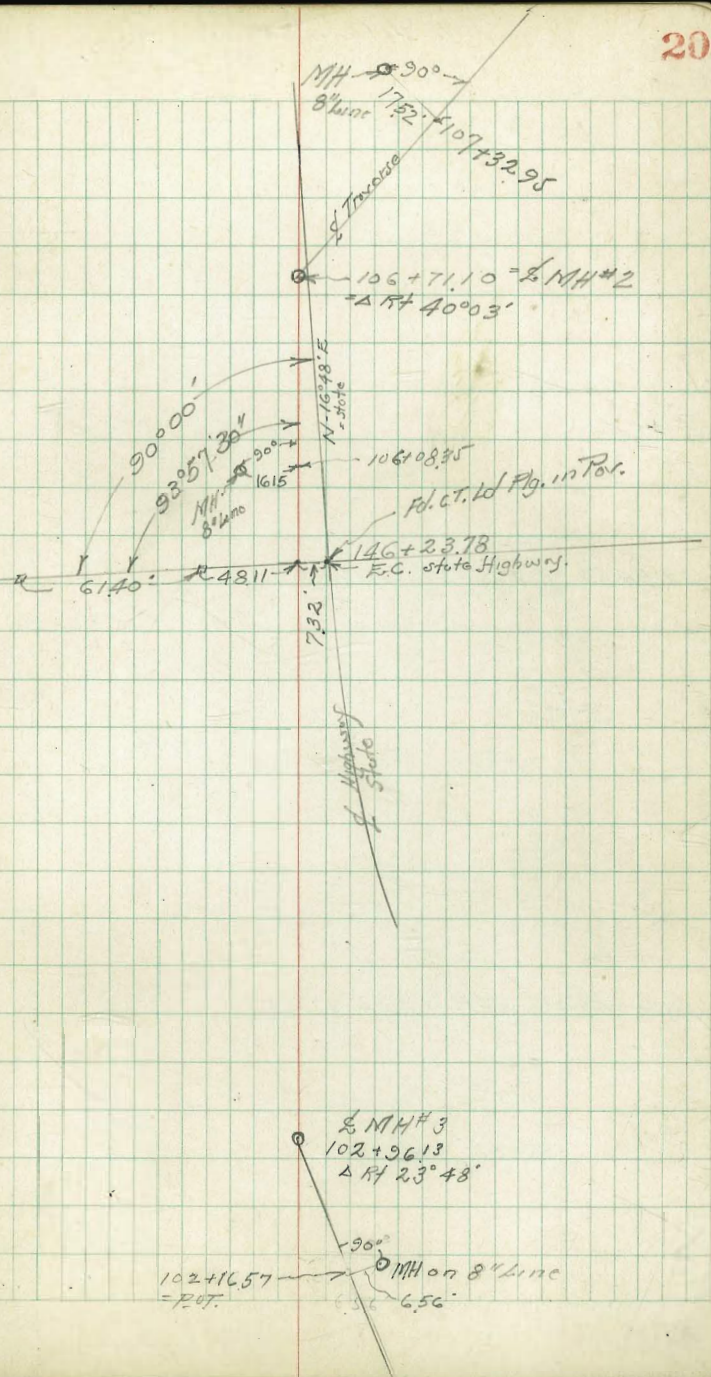 20
MH 90°
8" Line
17.52'
107+32.95
℄ Traverse
106+71.10 = ℄ MH #2
= Δ Rt 40°03'
N-16°48' E
= State
90°00'
93°57'30"
90°
MH
8" Line
16.15
106+08.35
Fd. CT. Ld Plg. in Pav.
146+23.78
E.C. State Highway.
61.40'
48.11
7.32'
℄ Highway
State
℄ MH #3
102+96.13
Δ Rt 23°48'
90°
MH on 8" Line
102+16.57
= P.O.T.
6.56
6.56'